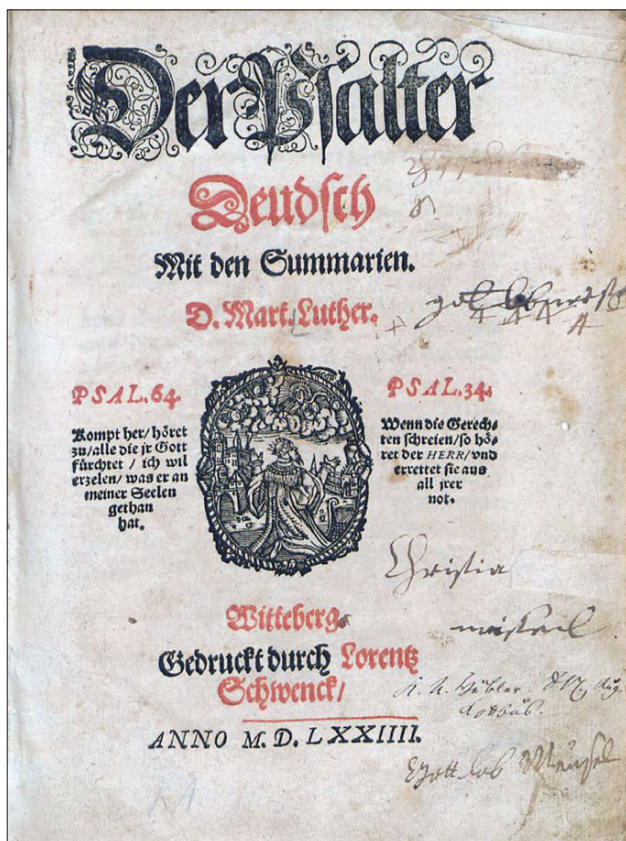 Der Psalter
Deudsch
Mit den Summarien.
D. Mart. Luther.
PSAL. 64.
Kompt her/ höret
zu/ alle die jr Gott
fürchtet / ich wil
erzelen/ was er an
meiner Seelen
gethan
hat.
PSAL. 34.
Wenn die Gerech=
ten schreien/ so hö=
ret der HERR/ vnd
errettet sie aus
all jrer
not.
Witteberg.
Gedruckt durch Lorentz
Schwenck/
ANNO M. D. LXXIIII.
Christia